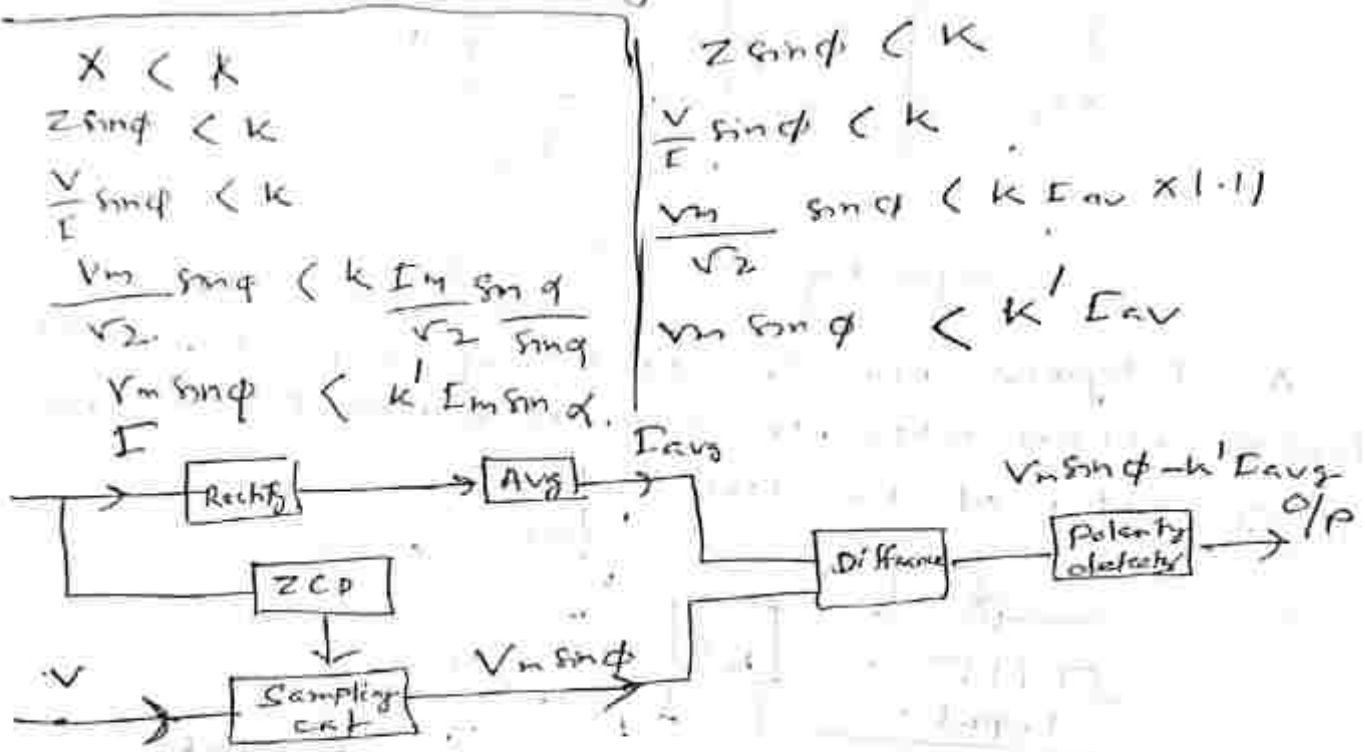 X < k
Z sinφ < k
V/I sinφ < k
Vm/√2 sinφ < k Im/√2 sin α/sin α
Vm sinφ < k' Im sin α.
Z sinφ < k
V/I sinφ < k
Vm/√2 sin φ < k Iav x 1.11
Vm sin φ < k' Iav
I
Rectify
Avg
Iavg
ZCD
V
Sampling
Vm sinφ
Vm sin φ - k' Iavg
Polarity
O/P